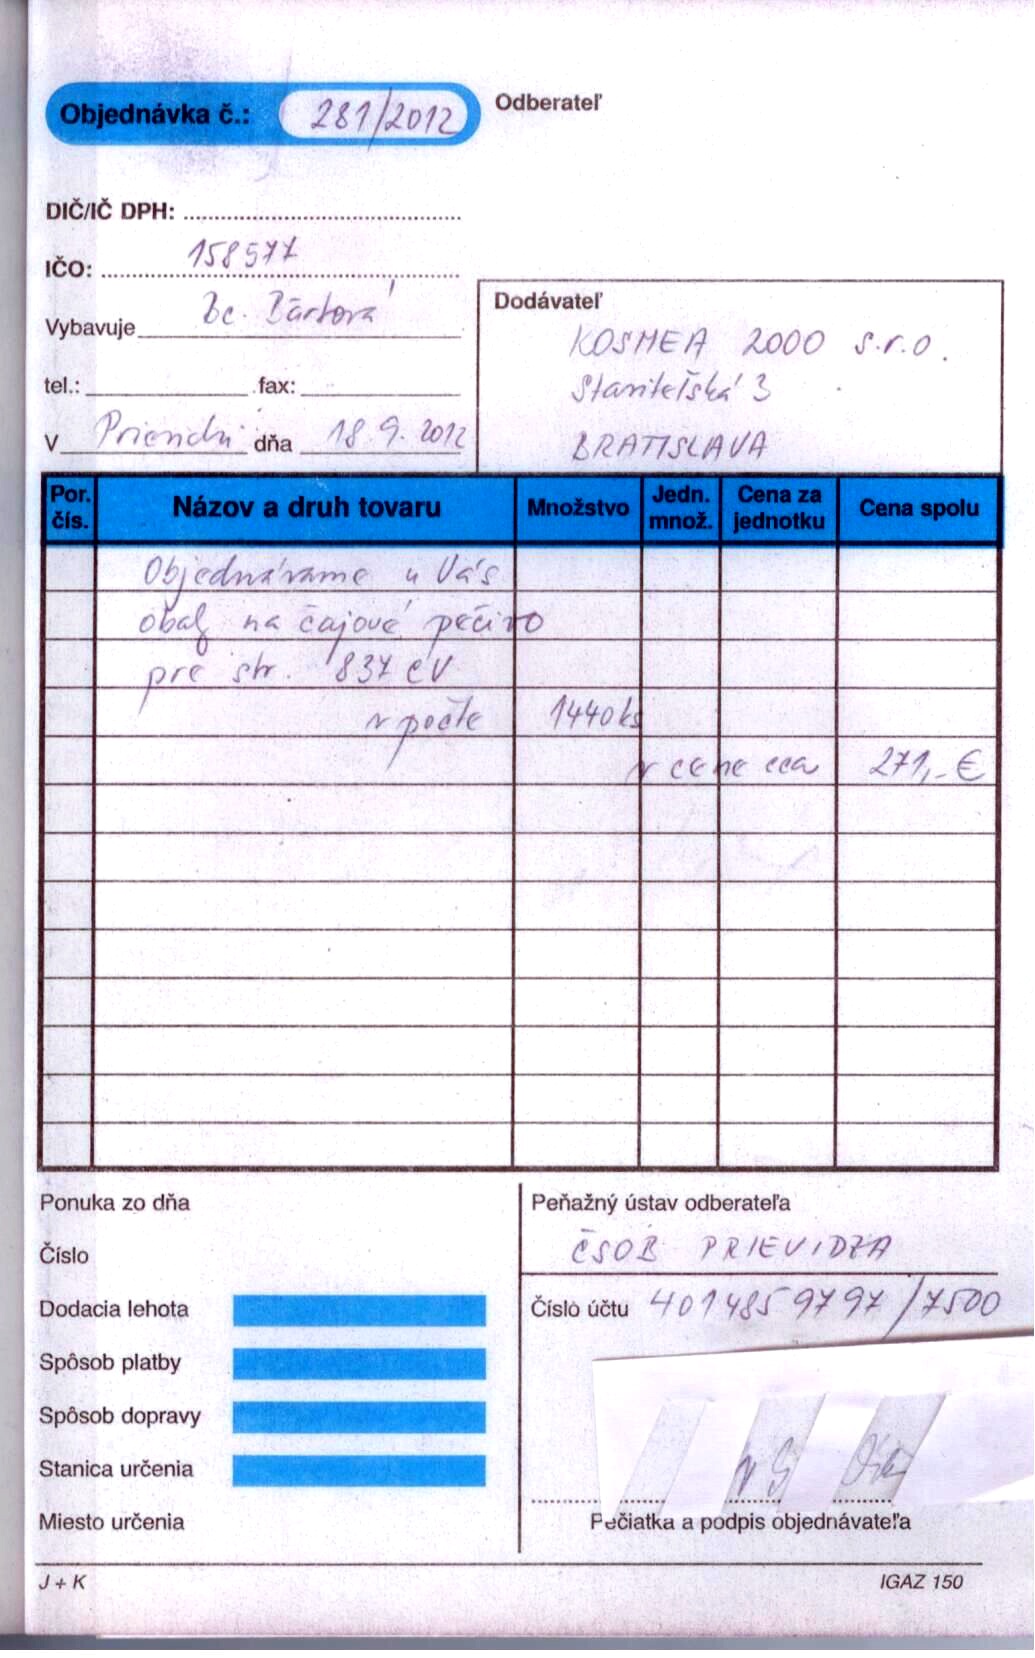 Objednávka č.: 281/2012
Odberateľ
DIČ/IČ DPH:
IČO: 158577
Vybavuje Bc. Bártová
tel.: fax:
V Prievidzi dňa 18.9.2012
Dodávateľ
KOSMEA 2000 s.r.o.
Staviteľská 3
BRATISLAVA
Por. čís. Názov a druh tovaru Množstvo Jedn. množ. Cena za jednotku Cena spolu
Objednávame u Vás
obaly na čajové pečivo
pre str. 837 CV
v počte 1440ks
v cene cca 271,-€
Ponuka zo dňa
Číslo
Dodacia lehota
Spôsob platby
Spôsob dopravy
Stanica určenia
Miesto určenia
Peňažný ústav odberateľa
ČSOB PRIEVIDZA
Číslo účtu 4014859797/7500
Pečiatka a podpis objednávateľa
J + K
IGAZ 150